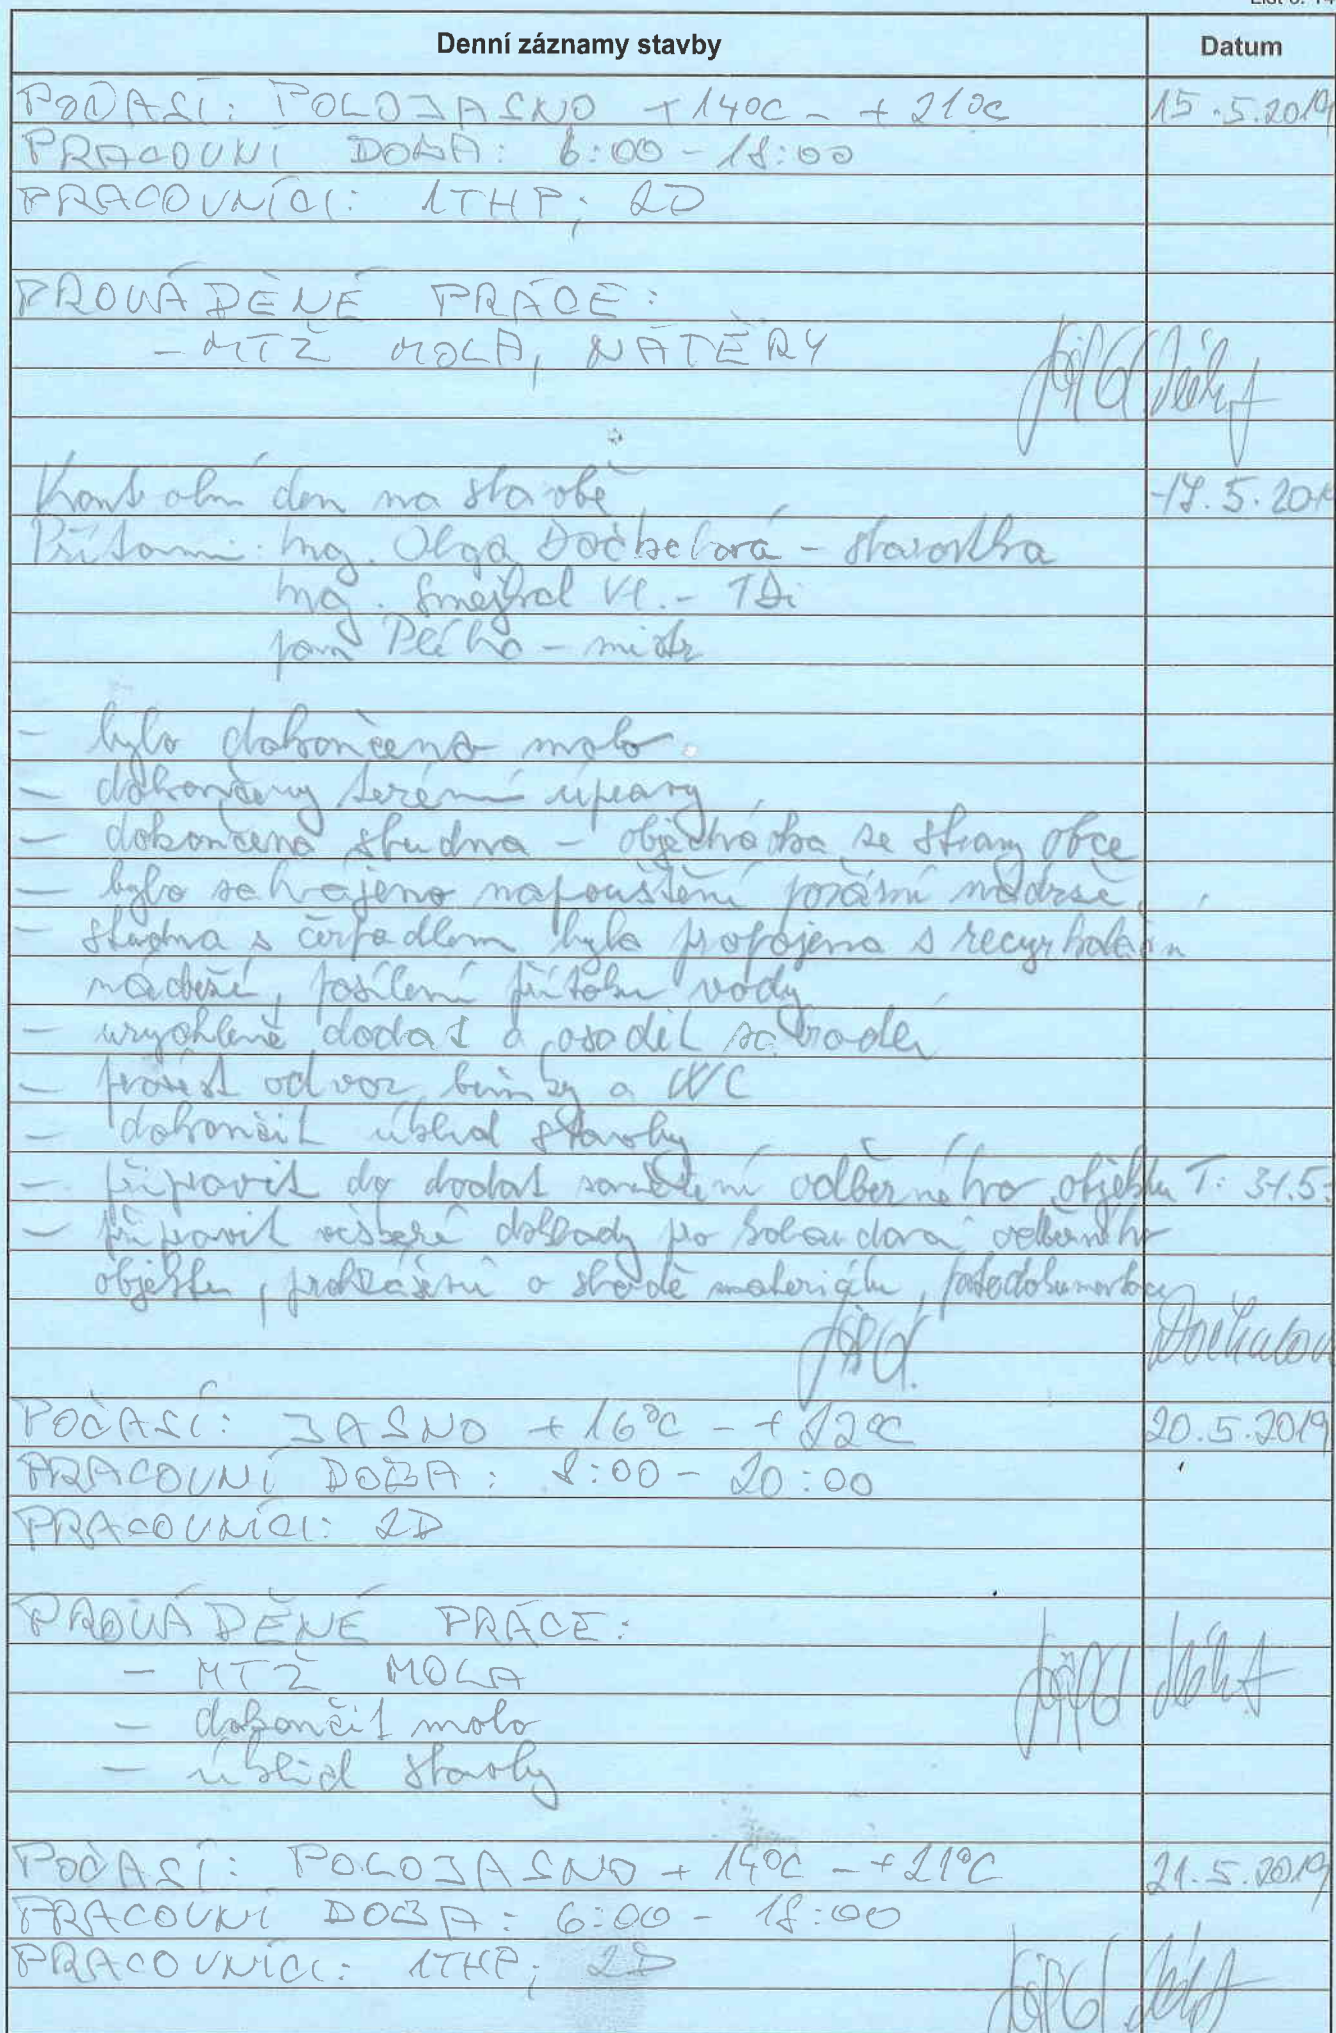 Denní záznamy stavby Datum
POČASÍ: POLOJASNO +14°C - +21°C 15.5.2019
PRACOVNÍ DOBA: 6:00 - 18:00
PRACOVNÍCI: 1THP; 2D
PROVÁDĚNÉ PRÁCE:
- MTŽ MOLA, NÁTĚRY
Kontrolní den na stavbě
Přítomni: Ing. Olga - starostka
Ing. Smejkal Vl. - TDi
pan - mistr
- bylo dokončeno molo.
- dokončeny terénní úpravy
- dokončena studna - objednávka ze strany obce
- bylo zahájeno napouštění požární nádrže
- studna s čerpadlem byla propojena s
nádrží, posílení přítoku vody
- urychleně dodat a osadit
- provést odvoz buňky a WC
- dokončit úklid stavby
- připravit do dodat zaměření odběrného objektu T: 31.5.
- připravit veškeré doklady pro odběrného
objektu, prohlášení o shodě materiálu,
POČASÍ: JASNO +16°C - +22°C 20.5.2019
PRACOVNÍ DOBA: 8:00 - 20:00
PRACOVNÍCI: 2D
PROVÁDĚNÉ PRÁCE:
- MTŽ MOLA
- dokončit molo
- úklid stavby
POČASÍ: POLOJASNO +14°C - +21°C 21.5.2019
PRACOVNÍ DOBA: 6:00 - 18:00
PRACOVNÍCI: 1THP; 2D